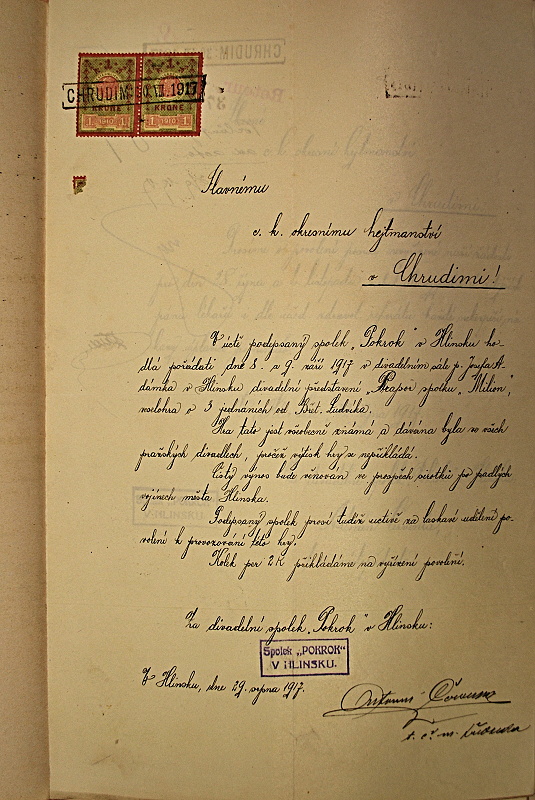 CHRUDIM
1917
1 1
KRONE KRONE
1 1910 1 1 1910 1
Slavnému
c. k. okresnímu hejtmanství
v Chrudimi!
V úctě podepsaný spolek „Pokrok" v Hlinsku ho-
dlá pořádati dne 8. a 9. září 1917 v divadelním sále p. Josefa A-
dámka v Hlinsku divadelní představení „Reapor spolku „Milion",
veselohra o 3 jednáních od Břet. Ludvíka.
Hra tato jest všeobecně známá a dávána byla ve všech
pražských divadlech, pročež výtisk hry se nepřikládá.
Čistý výnos bude věnován ve prospěch sirotků po padlých
vojínech města Hlinska.
Podepsaný spolek prosí tudíž uctivě za laskavé udělení po-
volení k provozování této hry.
Kolek per 2 K přikládáme na vyřízení povolení.
Za divadelní spolek „Pokrok" v Hlinsku:
Spolek „POKROK"
V HLINSKU.
V Hlinsku, dne 29. srpna 1917.
t. č.